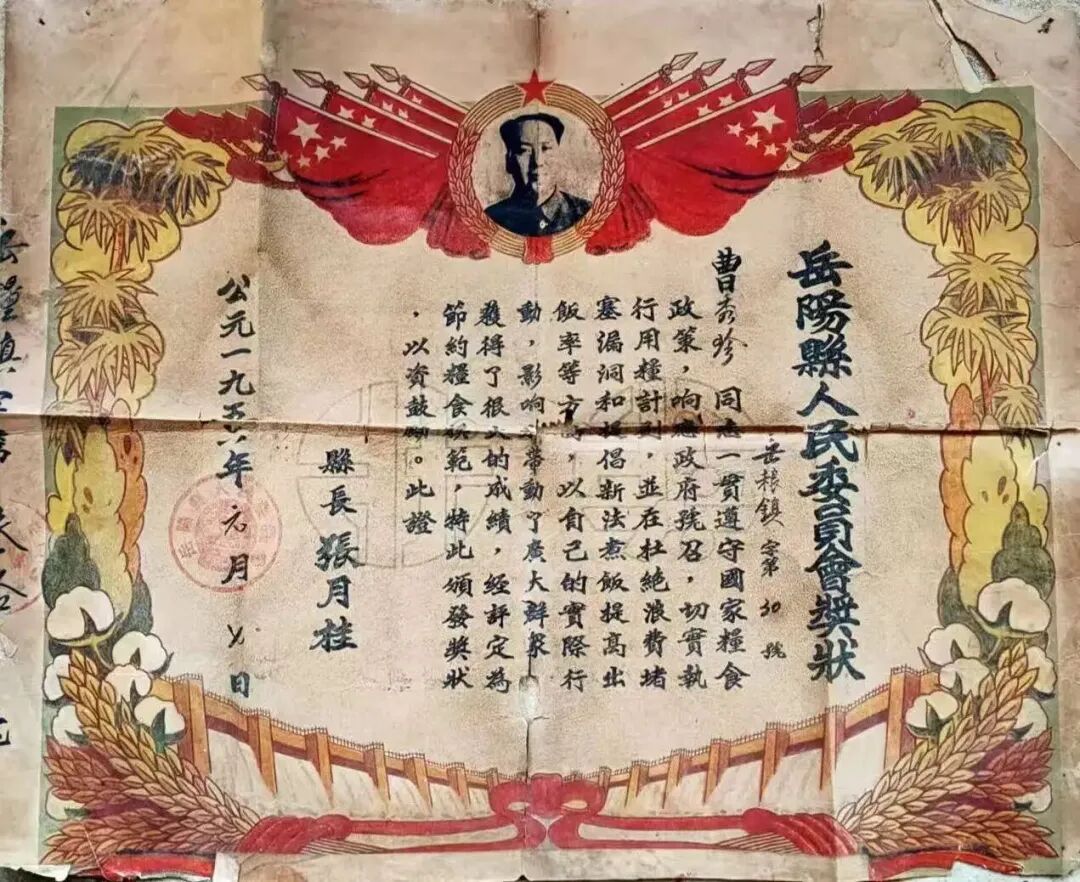 岳陽縣人民委員會獎狀
岳粮鎮字第30號
曹秀珍同志一貫遵守國家糧食
政策,响應政府號召,切實執
行用糧計划,並在杜絕浪費堵
塞漏洞和提倡新法煮飯提高出
飯率等方面,以自己的實際行
動,影响帶動了廣大群眾
獲得了很大的成績,經評定為
節約糧食模範,特此頒發獎狀
,以資鼓勵。此證
縣長 張月桂
公元一九五六年元月日
岳糧鎮字